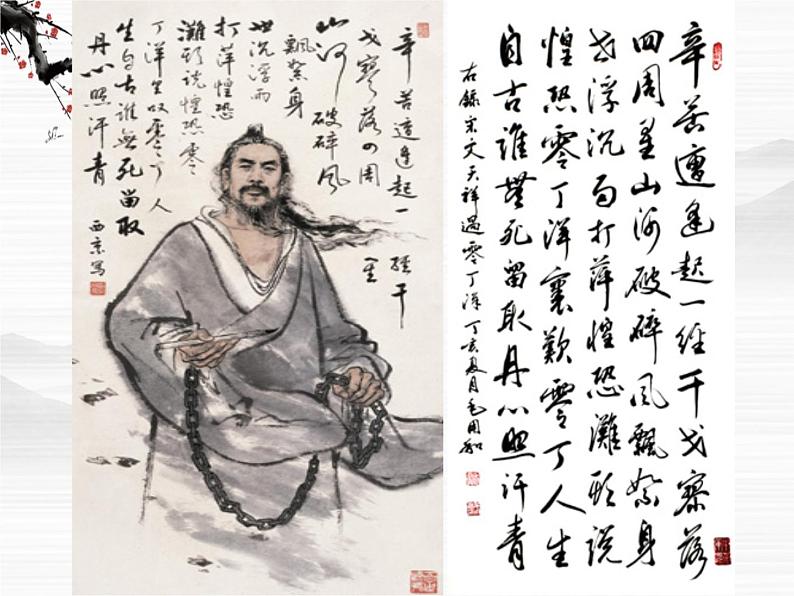 辛苦遭逢起一經干
戈寥落四周星
山河破碎風
飄絮身
世沉浮雨
打萍惶恐
灘頭說惶恐零
丁洋里叹零丁人
生自古誰無死留取
丹心照汗青
西京寫
辛苦遭逢起一经干戈寥落
四周星山河破碎风飘絮身
世浮沉雨打萍惶恐灘頭说
惶恐零丁洋裏歎零丁人生
自古誰無死留取丹心照汗青
右錄宋文天祥過零丁洋丁亥夏月